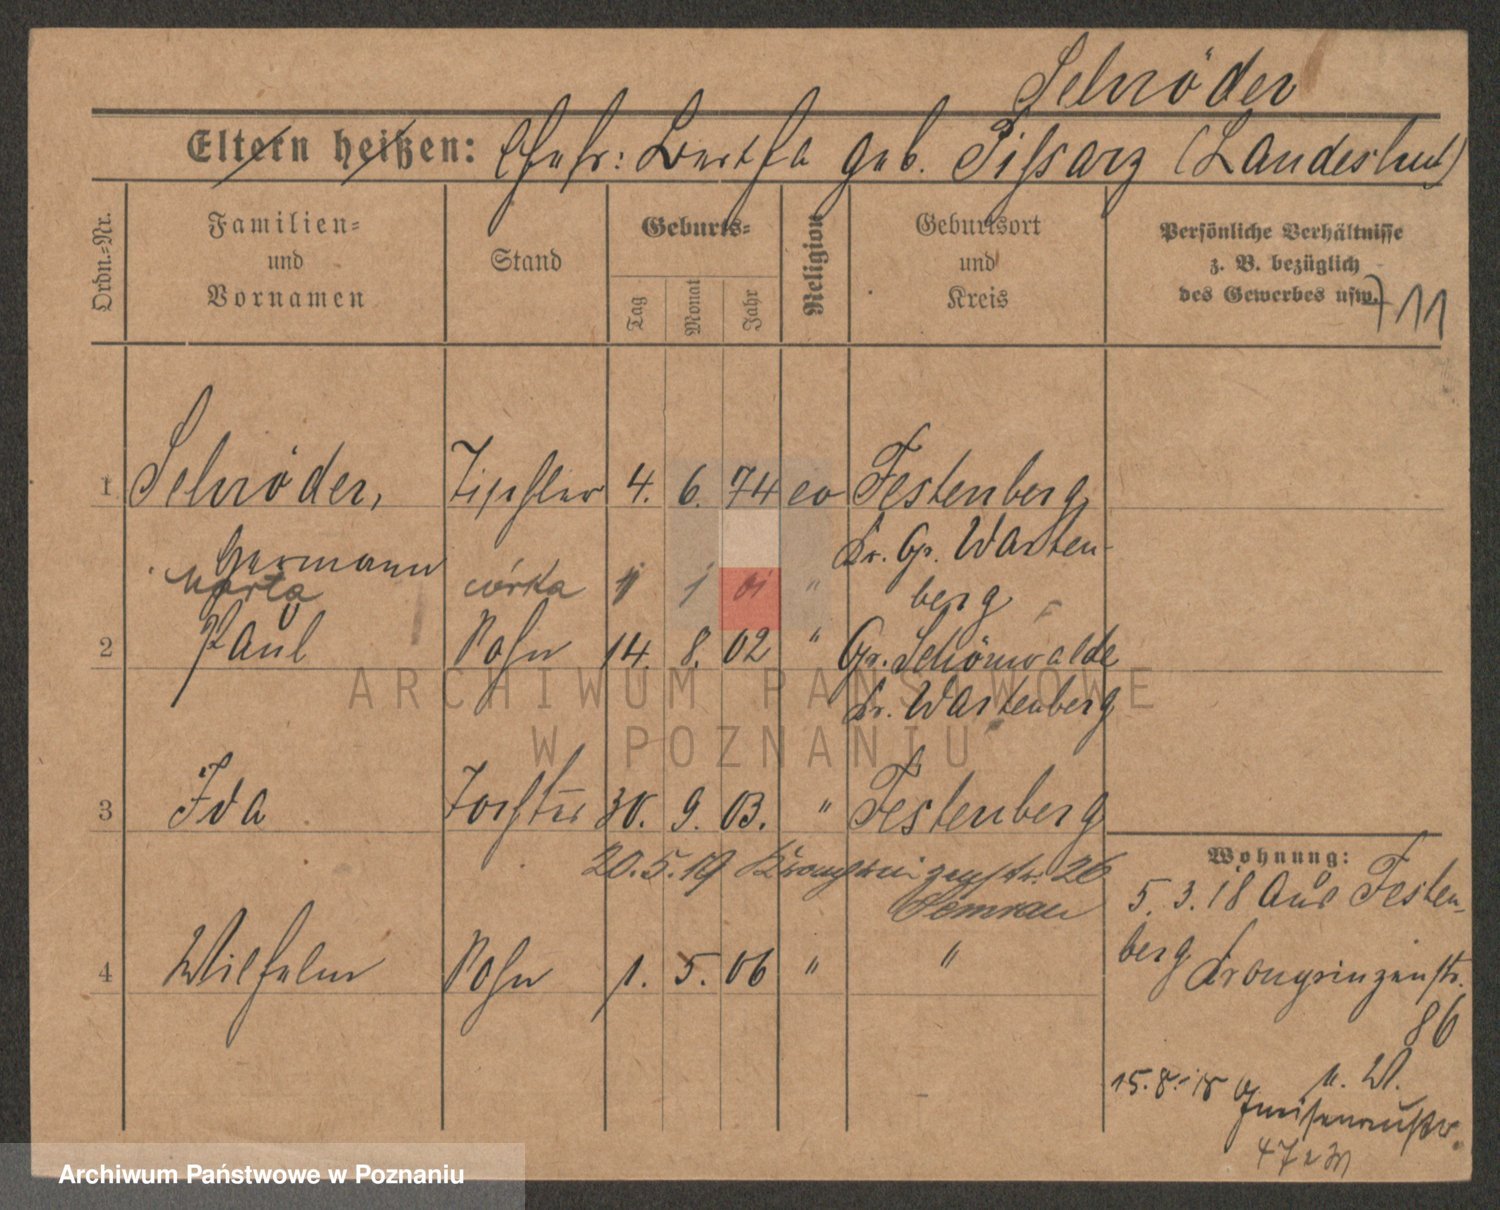 Schröder
Eltern heißen: Ehefr: Bertha geb. Pissarz (Landeshut)
Ordn.-Nr.
Familien- und Vornamen
Stand
Geburts-
Tag
Monat
Jahr
Religion
Geburtsort und Kreis
Persönliche Verhältnisse
z. B. bezüglich
des Gewerbes usw.
711
1 Schröder, Tischler 4. 6. 74 ev Festenberg
Hermann Kr. Gr. Warten-
Marta córka 1 1 01 " berg
2 Paul Sohn 14. 8. 02 " Gr. Schönwalde
Kr. Wartenberg
3 Ida Tochter 30. 9. 03. " Festenberg
20.5.19 Kronprinzenstr. 26
Wohnung:
5. 3. 18 aus Festen-
berg Kronprinzenstr.
86
4 Wilhelm Sohn 1. 5. 06 " "
15.8.18
ARCHIWUM PAŃSTWOWE
W POZNANIU
Archiwum Państwowe w Poznaniu